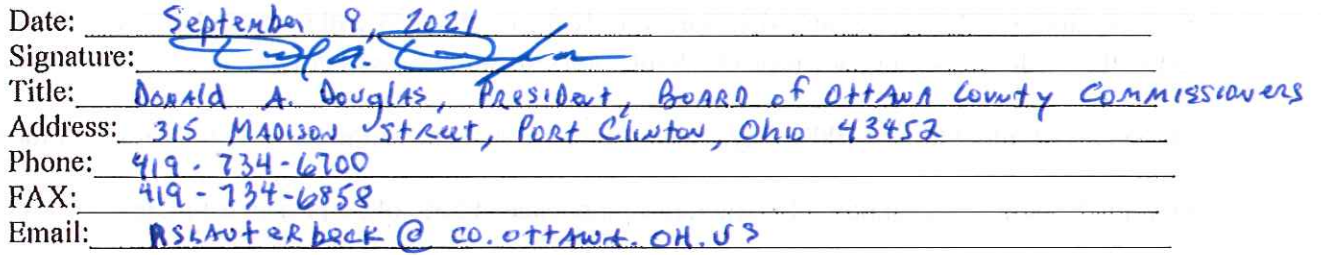 Date: September 9, 2021
Signature:
Title: Donald A. Douglas, President, Board of Ottawa County Commissioners
Address: 315 Madison Street, Port Clinton, Ohio 43452
Phone: 419-734-6700
FAX: 419-734-6858
Email: RSLauterbeck@co.ottawa.oh.us